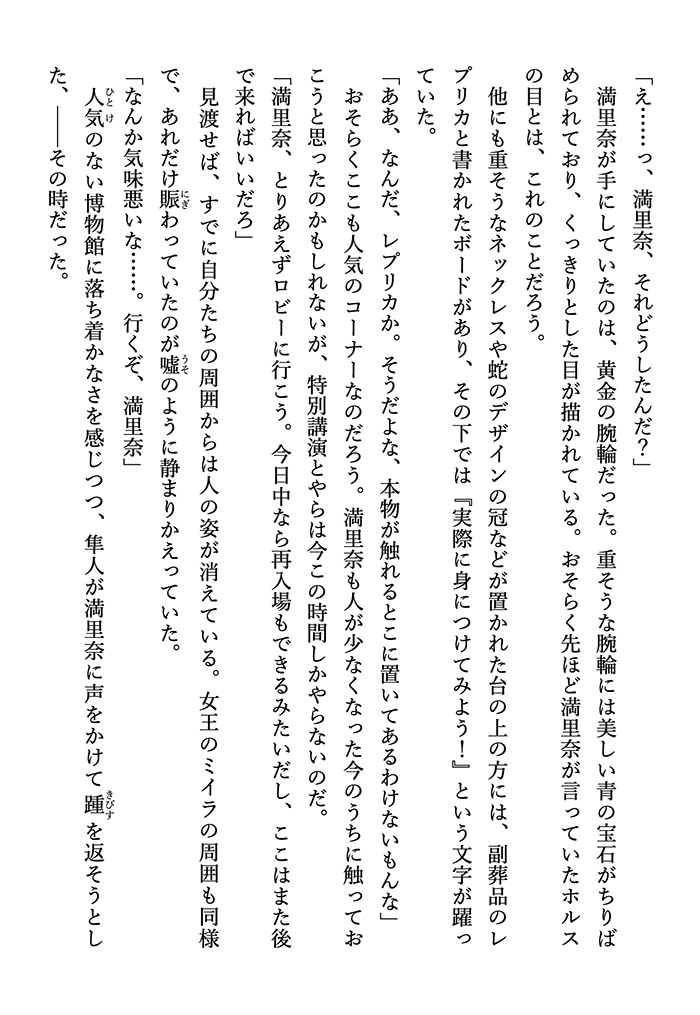 「え……っ、満里奈、それどうしたんだ？」
　満里奈が手にしていたのは、黄金の腕輪だった。重そうな腕輪には美しい青の宝石がちりば
められており、くっきりとした目が描かれている。おそらく先ほど満里奈が言っていたホルス
の目とは、これのことだろう。
　他にも重そうなネックレスや蛇のデザインの冠などが置かれた台の上の方には、副葬品のレ
プリカと書かれたボードがあり、その下では『実際に身につけてみよう！』という文字が躍っ
ていた。
「ああ、なんだ、レプリカか。そうだよな、本物が触れるとこに置いてあるわけないもんな」
　おそらくここも人気のコーナーなのだろう。満里奈も人が少なくなった今のうちに触ってお
こうと思ったのかもしれないが、特別講演とやらは今この時間しかやらないのだ。
「満里奈、とりあえずロビーに行こう。今日中なら再入場もできるみたいだし、ここはまた後
で来ればいいだろ」
　見渡せば、すでに自分たちの周囲からは人の姿が消えている。女王のミイラの周囲も同様
で、あれだけ賑にぎわっていたのが嘘うそのように静まりかえっていた。
「なんか気味悪いな……。行くぞ、満里奈」
　人気ひとけのない博物館に落ち着かなさを感じつつ、隼人が満里奈に声をかけて踵きびすを返そうとし
た、――その時だった。